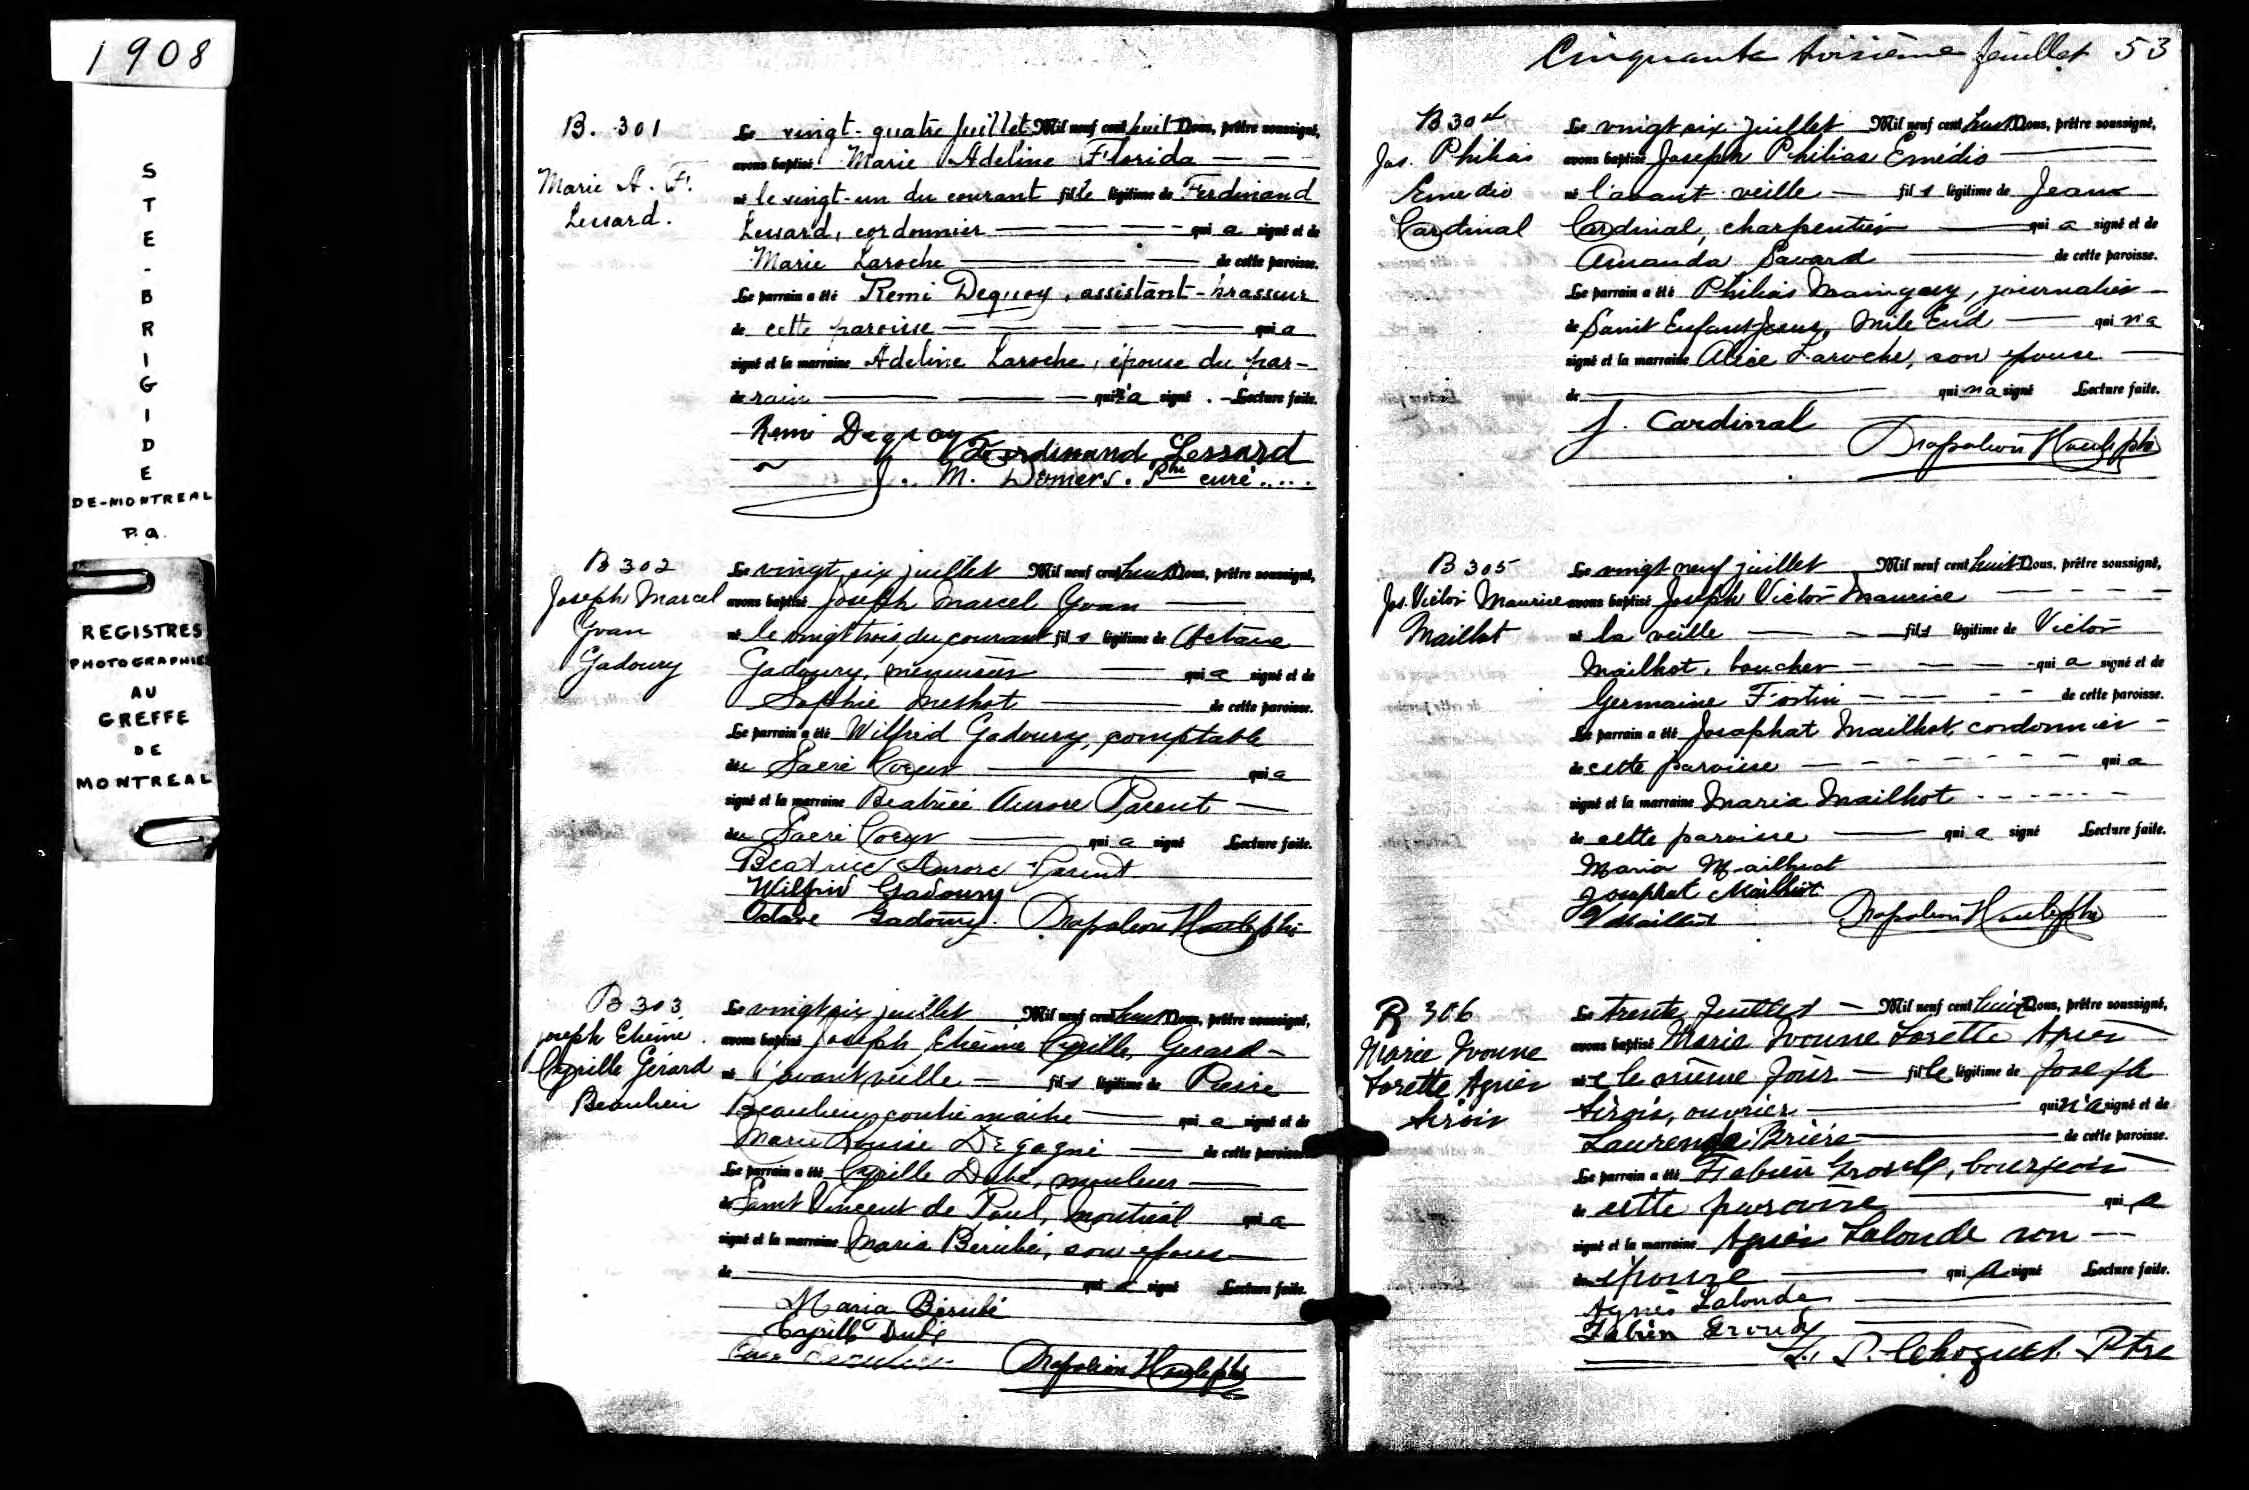 1908
STE-BRIGIDE
DE-MONTREAL
P.Q.
REGISTRES
PHOTOGRAPHIES
AU
GREFFE
DE
MONTREAL
B. 301
Marie A. F.
Lessard.
Le vingt-quatre juillet Mil neuf cent huit Nous, prêtre soussigné,
avons baptisé Marie Adeline Florida
né le vingt-un du courant fille légitime de Ferdinand
Lessard, cordonnier qui a signé et de
Marie Laroche de cette paroisse.
Le parrain a été Remi Dequoy, assistant-brasseur
de cette paroisse qui a
signé et la marraine Adeline Laroche, épouse du par-
de rain qui n'a signé. Lecture faite.
Remi Dequoy
Ferdinand Lessard
J. M. Demers. Ptre curé.....
B 302
Joseph Marcel
Yvan
Gadoury
Le vingt six juillet Mil neuf cent huit Nous, prêtre soussigné,
avons baptisé Joseph Marcel Yvan
né le vingt trois du courant fils légitime de Octave
Gadoury, menuisier qui a signé et de
Sophie de cette paroisse.
Le parrain a été Wilfrid Gadoury, comptable
du Sacré Coeur qui a
signé et la marraine Beatrice Aurore Parent
du Sacré Coeur qui a signé Lecture faite.
Beatrice Aurore Parent
Wilfrid Gadoury
Octave Gadoury. Napoleon
B 303
Joseph Etienne
Cyrille Gérard
Beaulieu
Le vingt six juillet Mil neuf cent huit Nous, prêtre soussigné,
avons baptisé Joseph Etienne Cyrille Gerard
né l'avant veille fils légitime de Pierre
Beaulieu, contre maitre qui a signé et de
Marie Louise Degagné de cette paroisse
Le parrain a été Cyrille Dubé, mouleur
de Saint Vincent de Paul, Montréal qui a
signé et la marraine Maria Berubé, son épouse
de qui a signé Lecture faite.
Maria Bérubé
Cyrille Dubé
Napoleon
Cinquante troisième feuillet 53
B 304
Jos. Philias
Emedio
Cardinal
Le vingt six juillet Mil neuf cent huit Nous, prêtre soussigné,
avons baptisé Joseph Philias Emédio
né l'avant-veille fils légitime de Jean
Cardinal, charpentier qui a signé et de
Amanda Savard de cette paroisse.
Le parrain a été Philias Mainguy, journalier
de Saint Enfant Jesus, Mile End qui n'a
signé et la marraine Alice Laroche, son épouse
de qui n'a signé Lecture faite.
J. Cardinal
Napoleon
B 305
Jos. Victor Maurice
Maillot
Le vingt neuf juillet Mil neuf cent huit Nous, prêtre soussigné,
avons baptisé Joseph Victor Maurice
né la veille fils légitime de Victor
Mailhot, boucher qui a signé et de
Germaine Fortin de cette paroisse.
Le parrain a été Josaphat Mailhot, cordonnier
de cette paroisse qui a
signé et la marraine Maria Mailhot
de cette paroisse qui a signé Lecture faite.
Maria Mailhot
Josaphat Mailhot
V Mailhot Napoleon
B 306
Marie Yvonne
Lorette Agnès
Sirois
Le trente Juillet Mil neuf cent huit Nous, prêtre soussigné,
avons baptisé Marie Yvonne Lorette Agnès
née le même jour fille légitime de Joseph
Sirois, ouvrier qui n'a signé et de
Laurenda Brière de cette paroisse.
Le parrain a été Fabien Proulx, bourgeois
de cette paroisse qui a
signé et la marraine Agnès Lalonde son
de épouse qui a signé Lecture faite.
Agnès Lalonde
Fabien Proulx
L. P. Choquet. Ptre